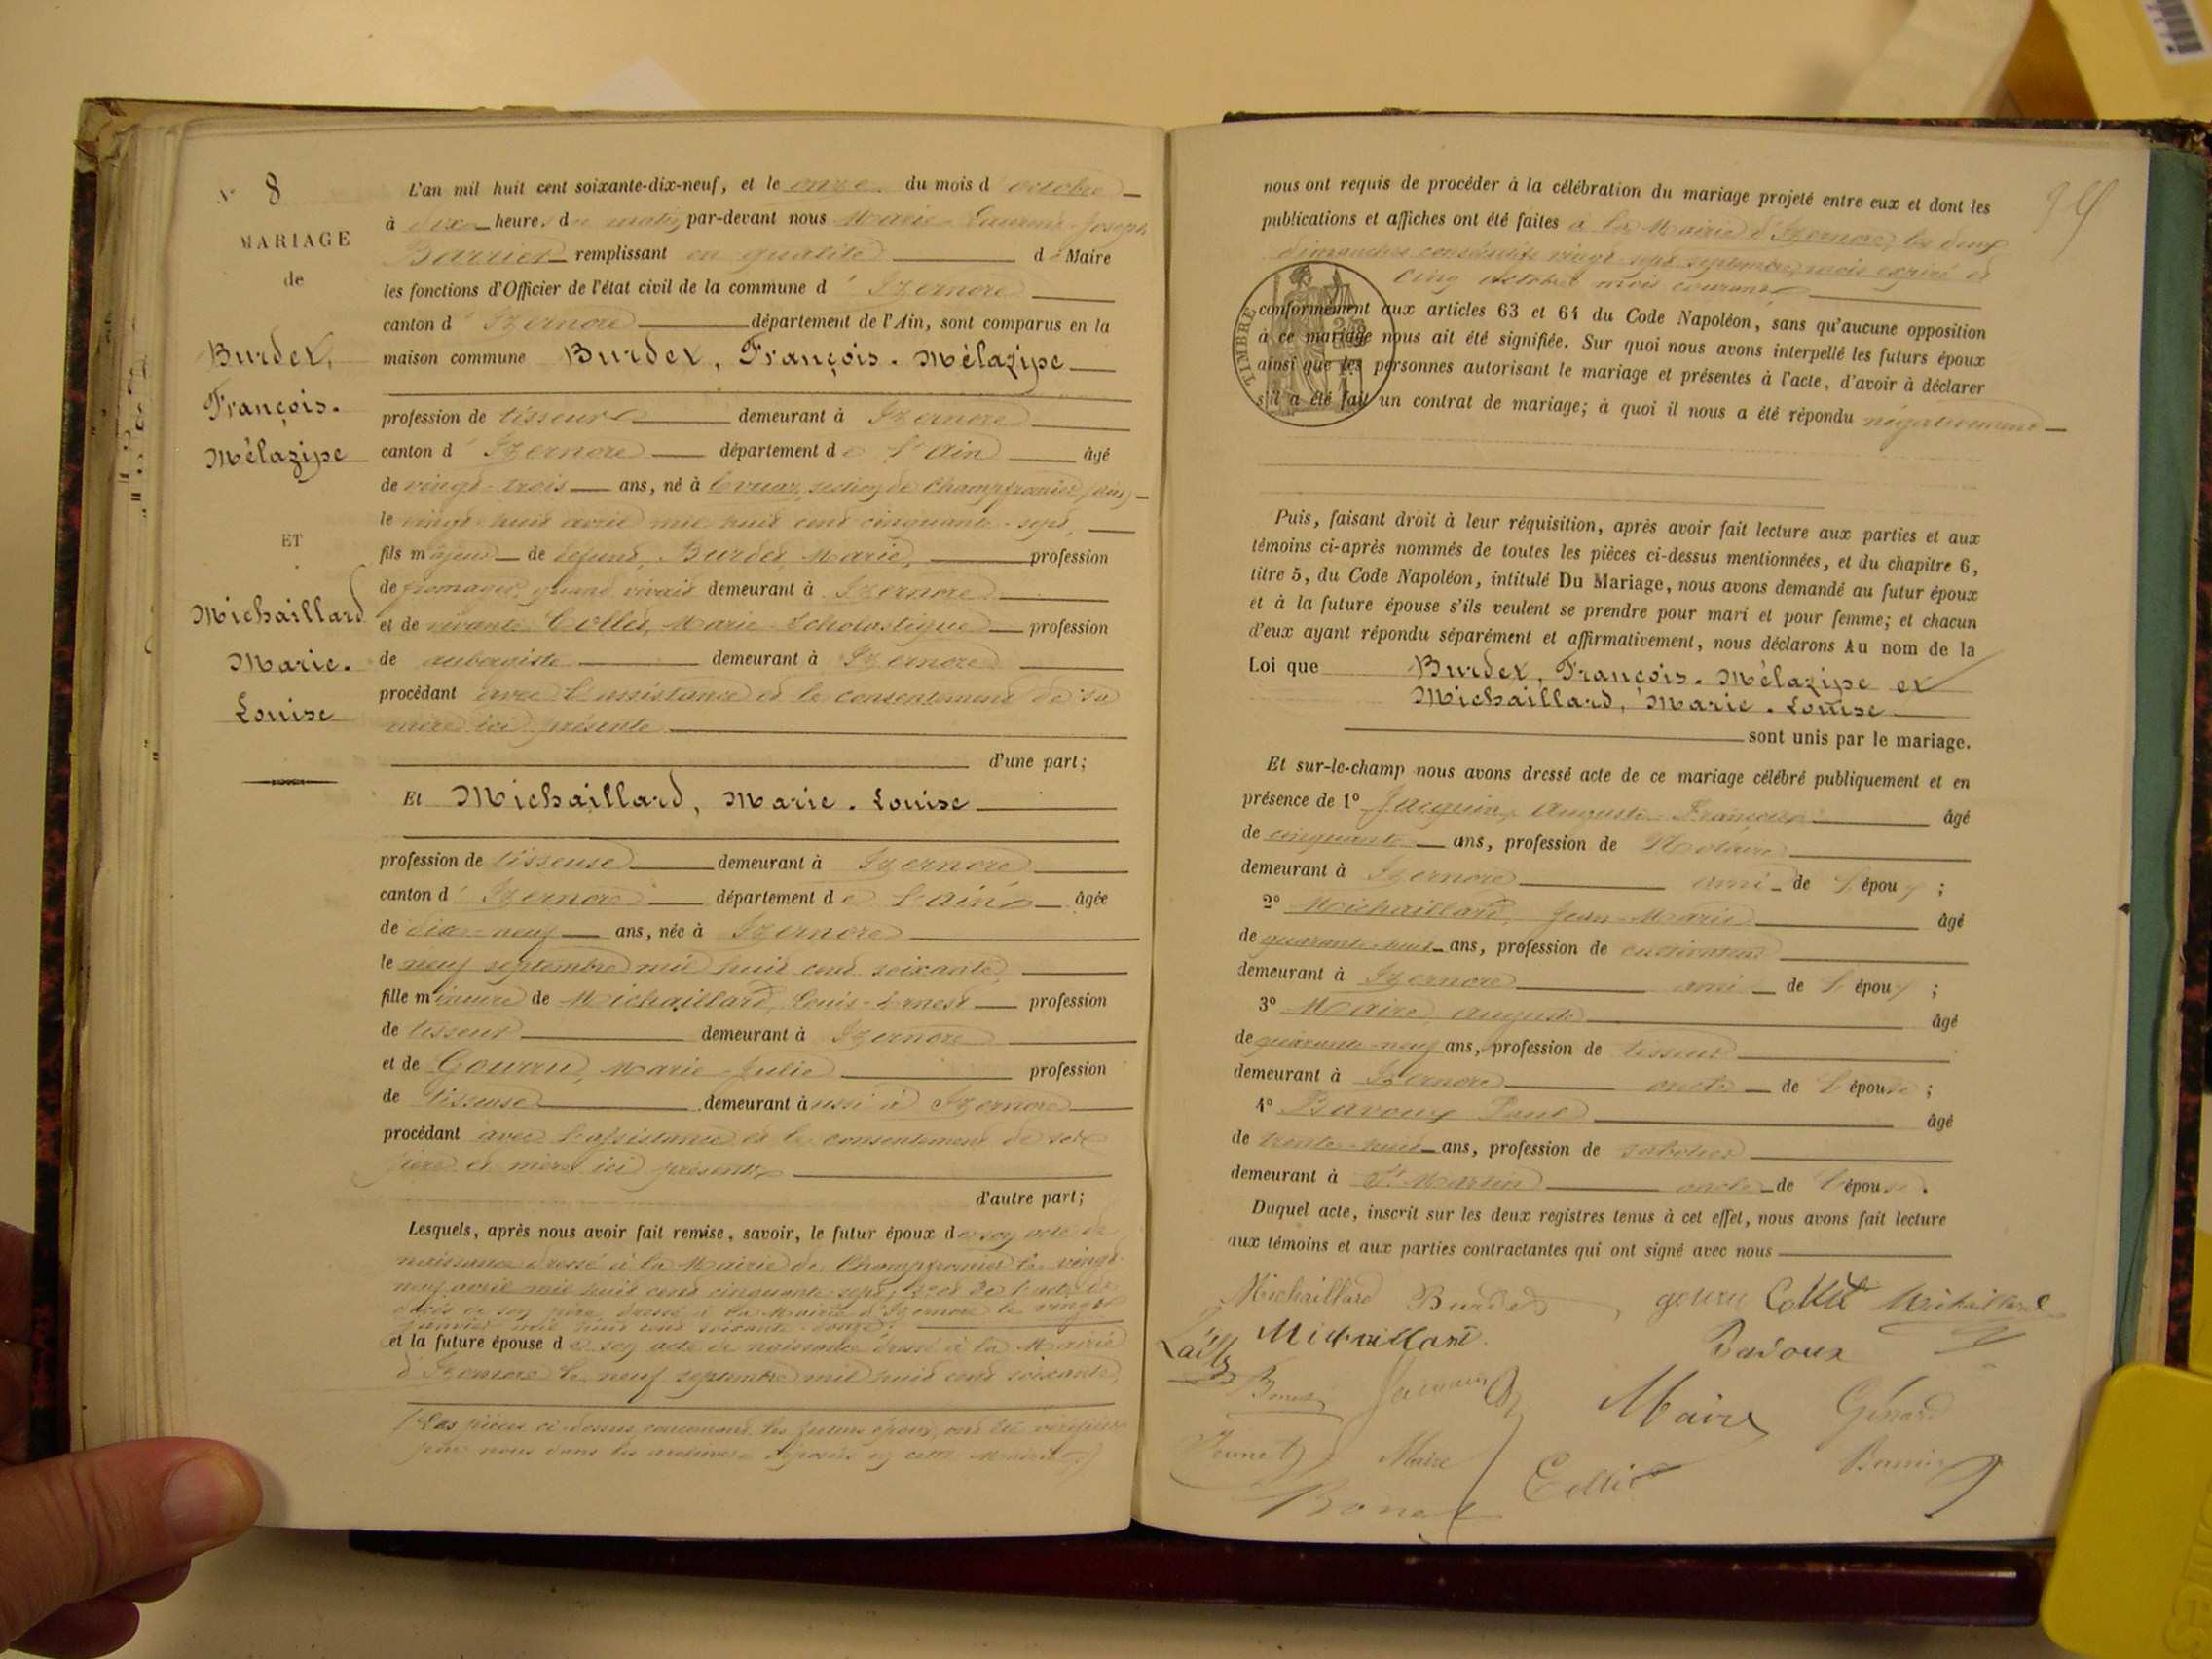 N° 8
MARIAGE
de
Burdet,
François.
Mélazipe
ET
Michaillard
Marie.
Louise
L'an mil huit cent soixante-dix-neuf, et le onze du mois d'octobre
à dix heures du matin, par-devant nous Marie Laurent-Joseph
Barrier remplissant en qualité de Maire
les fonctions d'Officier de l'état civil de la commune d'Izernore
canton d'Izernore département de l'Ain, sont comparus en la
maison commune Burdet, François. Mélazipe
profession de tisseur demeurant à Izernore
canton d'Izernore département de l'Ain âgé
de vingt-trois ans, né à section de Champfromier (Ain)
le vingt-huit avril mil huit cent cinquante-sept,
fils majeur de défunt, Burdet Marie, profession
de fromager, quand vivait demeurant à Izernore
et de vivante Collet, Marie-Scholastique profession
de aubergiste demeurant à Izernore
procédant avec l'assistance et le consentement de sa
mère ici présente
d'une part;
Et Michaillard, Marie. Louise
profession de tisseuse demeurant à Izernore
canton d'Izernore département de l'Ain âgée
de dix-neuf ans, née à Izernore
le neuf septembre mil huit cent soixante,
fille mineure de Michaillard, Louis-Ernest profession
de tisseur demeurant à Izernore
et de Gouru, Marie-Julie profession
de tisseuse demeurant aussi à Izernore
procédant avec l'assistance et le consentement de ses
père et mère ici présents
d'autre part;
Lesquels, après nous avoir fait remise, savoir, le futur époux de son acte de
naissance dressé à la Mairie de Champfromier le vingt-
neuf avril mil huit cent cinquante sept; 2° de l'acte de
décès de son père dressé à la Mairie d'Izernore le vingt
janvier mil huit cent soixante-
et la future épouse de son acte de naissance dressé à la Mairie
d'Izernore le neuf septembre mil huit cent soixante,
(Les pièces ci-dessus concernant les futurs époux, ont été vérifiées
par nous dans les archives déposées en cette Mairie)
nous ont requis de procéder à la célébration du mariage projeté entre eux et dont les
publications et affiches ont été faites à la Mairie d'Izernore, les deux
dimanches consécutifs vingt-sept septembre, mois expiré et
cinq octobre mois courant,
TIMBRE
conformément aux articles 63 et 64 du Code Napoléon, sans qu'aucune opposition
à ce mariage nous ait été signifiée. Sur quoi nous avons interpellé les futurs époux
ainsi que les personnes autorisant le mariage et présentes à l'acte, d'avoir à déclarer
s'il a été fait un contrat de mariage; à quoi il nous a été répondu négativement
Puis, faisant droit à leur réquisition, après avoir fait lecture aux parties et aux
témoins ci-après nommés de toutes les pièces ci-dessus mentionnées, et du chapitre 6,
titre 5, du Code Napoléon, intitulé Du Mariage, nous avons demandé au futur époux
et à la future épouse s'ils veulent se prendre pour mari et pour femme; et chacun
d'eux ayant répondu séparément et affirmativement, nous déclarons Au nom de la
Loi que Burdet, François. Mélazipe et
Michaillard, Marie. Louise
sont unis par le mariage.
Et sur-le-champ nous avons dressé acte de ce mariage célébré publiquement et en
présence de 1° Jacquin, Auguste-François âgé
de cinquante ans, profession de Notaire
demeurant à Izernore ami de l'époux;
2° Michaillard, Jean-Marie âgé
de quarante-huit ans, profession de cultivateur
demeurant à Izernore ami de l'époux;
3° Maire, Auguste âgé
de quarante-neuf ans, profession de tisseur
demeurant à Izernore oncle de l'épouse;
4° Bavoux Paul âgé
de trente-huit ans, profession de sabotier
demeurant à St Martin oncle de l'épouse.
Duquel acte, inscrit sur les deux registres tenus à cet effet, nous avons fait lecture
aux témoins et aux parties contractantes qui ont signé avec nous
Michaillard Burdet gouru Collet Michaillard
Michaillard Bavoux
Jacquin Maire Génard
Maire Collet Barrier